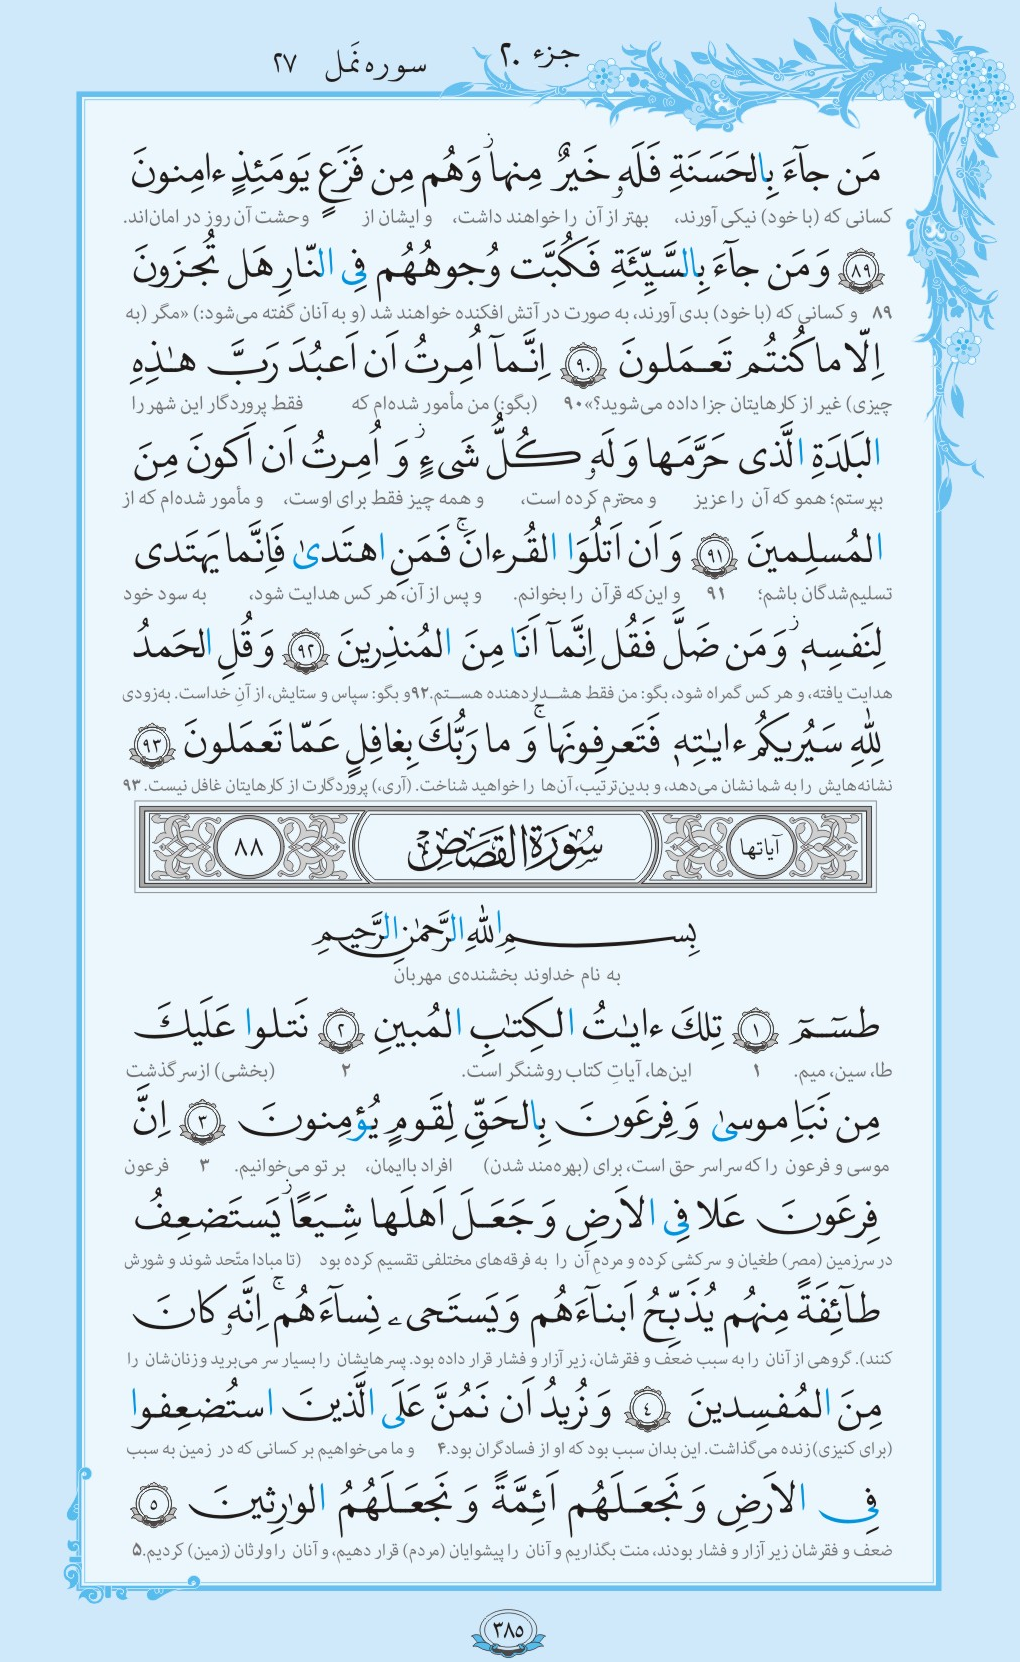 جزء ۲۰
سوره نَمل ۲۷
مَن جآءَ بِالحَسَنَةِ فَلَهٗ خَيرٌ مِنها ۖ وَهُم مِن فَزَعٍ يَومَئِذٍ ءامِنونَ
کسانی که (با خود) نیکی آورند، بهتر از آن را خواهند داشت، و ایشان از وحشت آن روز در امان‌اند.
﴿٨٩﴾ وَ مَن جآءَ بِالسَّيِّئَةِ فَكُبَّت وُجوهُهُم فِى النّارِ هَل تُجزَونَ
۸۹ و کسانی که (با خود) بدی آورند، به صورت در آتش افکنده خواهند شد (و به آنان گفته می‌شود:) «مگر (به
اِلّا ما كُنتُم تَعمَلونَ ﴿٩٠﴾ اِنَّمآ اُمِرتُ اَن اَعبُدَ رَبَّ هٰذِهِ
چیزی) غیر از کارهایتان جزا داده می‌شوید؟» ۹۰ (بگو:) من مأمور شده‌ام که فقط پروردگار این شهر را
البَلدَةِ الَّذى حَرَّمَها وَ لَهٗ كُلُّ شَىءٍ ۖ وَ اُمِرتُ اَن اَكونَ مِنَ
بپرستم؛ همو که آن را عزیز و محترم کرده است، و همه چیز فقط برای اوست، و مأمور شده‌ام که از
المُسلِمينَ ﴿٩١﴾ وَ اَن اَتلُوَا القُرءانَ ۚ فَمَنِ اهتَدىٰ فَاِنَّما يَهتَدى
تسلیم‌شدگان باشم؛ ۹۱ و این‌که قرآن را بخوانم. و پس از آن، هر کس هدایت شود، به سود خود
لِنَفسِهٖ ۖ وَ مَن ضَلَّ فَقُل اِنَّمآ اَنَا مِنَ المُنذِرينَ ﴿٩٢﴾ وَ قُلِ الحَمدُ
هدایت یافته، و هر کس گمراه شود، بگو: من فقط هشداردهنده هستم. ۹۲ و بگو: سپاس و ستایش، از آنِ خداست. به‌زودی
لِلّٰهِ سَيُريكُم ءايٰتِهٖ فَتَعرِفونَها ۚ وَ ما رَبُّكَ بِغافِلٍ عَمّا تَعمَلونَ ﴿٩٣﴾
نشانه‌هایش را به شما نشان می‌دهد، و بدین‌ترتیب، آن‌ها را خواهید شناخت. (آری،) پروردگارت از کارهایتان غافل نیست. ۹۳
آیاتها سُورَةُ القَصَصِ ٨٨
بِسمِ اللّٰهِ الرَّحمٰنِ الرَّحيمِ
به نام خداوند بخشنده‌ی مهربان
طسٓمٓ ﴿١﴾ تِلكَ ءايٰتُ الكِتٰبِ المُبينِ ﴿٢﴾ نَتلوا عَلَيكَ
طا، سین، میم. ۱ این‌ها، آیاتِ کتاب روشنگر است. ۲ (بخشی) از سرگذشت
مِن نَبَاِ موسىٰ وَ فِرعَونَ بِالحَقِّ لِقَومٍ يُؤمِنونَ ﴿٣﴾ اِنَّ
موسی و فرعون را که سراسر حق است، برای (بهره‌مند شدن) افراد باایمان، بر تو می‌خوانیم. ۳ فرعون
فِرعَونَ عَلا فِى الاَرضِ وَ جَعَلَ اَهلَها شِيَعًا ۖ يَستَضعِفُ
در سرزمین (مصر) طغیان و سرکشی کرده و مردمِ آن را به فرقه‌های مختلفی تقسیم کرده بود (تا مبادا متّحد شوند و شورش
طآئِفَةً مِنهُم يُذَبِّحُ اَبنآءَهُم وَ يَستَحىۦ نِسآءَهُم ۚ اِنَّهٗ كانَ
کنند). گروهی از آنان را به سبب ضعف و فقرشان، زیر آزار و فشار قرار داده بود. پسرهایشان را بسیار سر می‌برید و زنان‌شان را
مِنَ المُفسِدينَ ﴿٤﴾ وَ نُريدُ اَن نَمُنَّ عَلَى الَّذينَ استُضعِفوا
(برای کنیزی) زنده می‌گذاشت. این بدان سبب بود که او از فسادگران بود. ۴ و ما می‌خواهیم بر کسانی که در زمین به سبب
فِى الاَرضِ وَ نَجعَلَهُم اَئِمَّةً وَ نَجعَلَهُمُ الوٰرِثينَ ﴿٥﴾
ضعف و فقرشان زیر آزار و فشار بودند، منت بگذاریم و آنان را پیشوایان (مردم) قرار دهیم، و آنان را وارثان (زمین) کردیم. ۵
۳۸۵